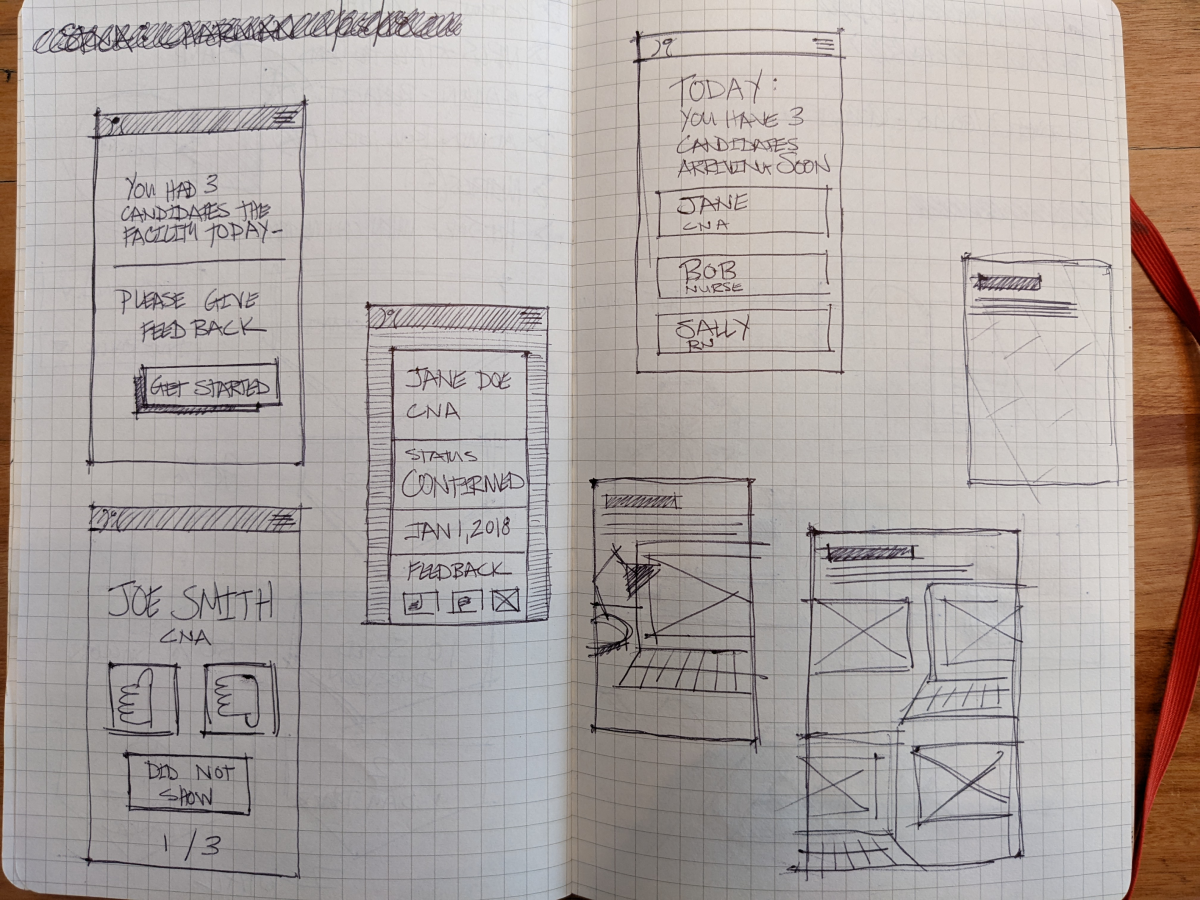 YOU HAD 3
CANDIDATES THE
FACILITY TODAY-
PLEASE GIVE
FEEDBACK
GET STARTED
JOE SMITH
CNA
DID NOT
SHOW
1/3
JANE DOE
CNA
STATUS
CONFIRMED
JAN 1, 2018
FEEDBACK
TODAY:
YOU HAVE 3
CANDIDATES
ARRIVING SOON
JANE
CNA
BOB
NURSE
SALLY
RN